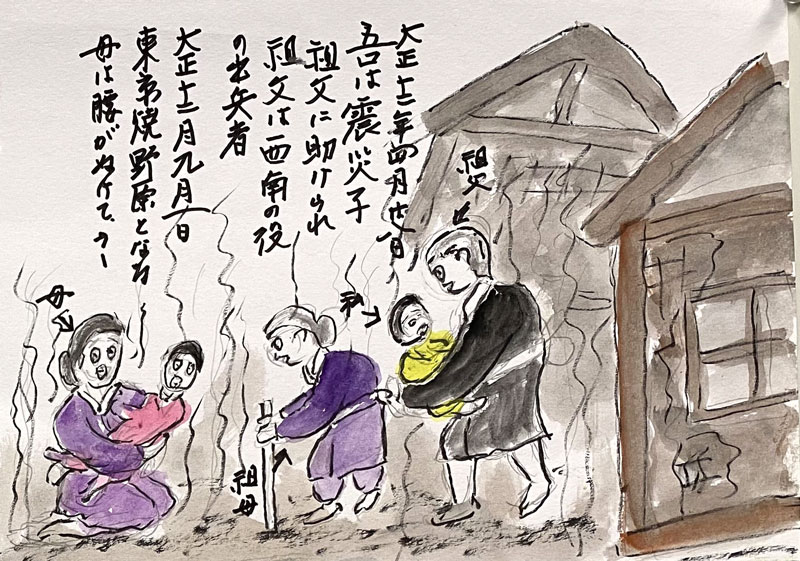 大正十二年四月廿八日
吾は震災子
祖父に助けられ
祖父は西南の役
の出兵者
大正十二月九月一日
東京焼野原となる
母は腰がぬけて、うー
祖父
私
祖母
母